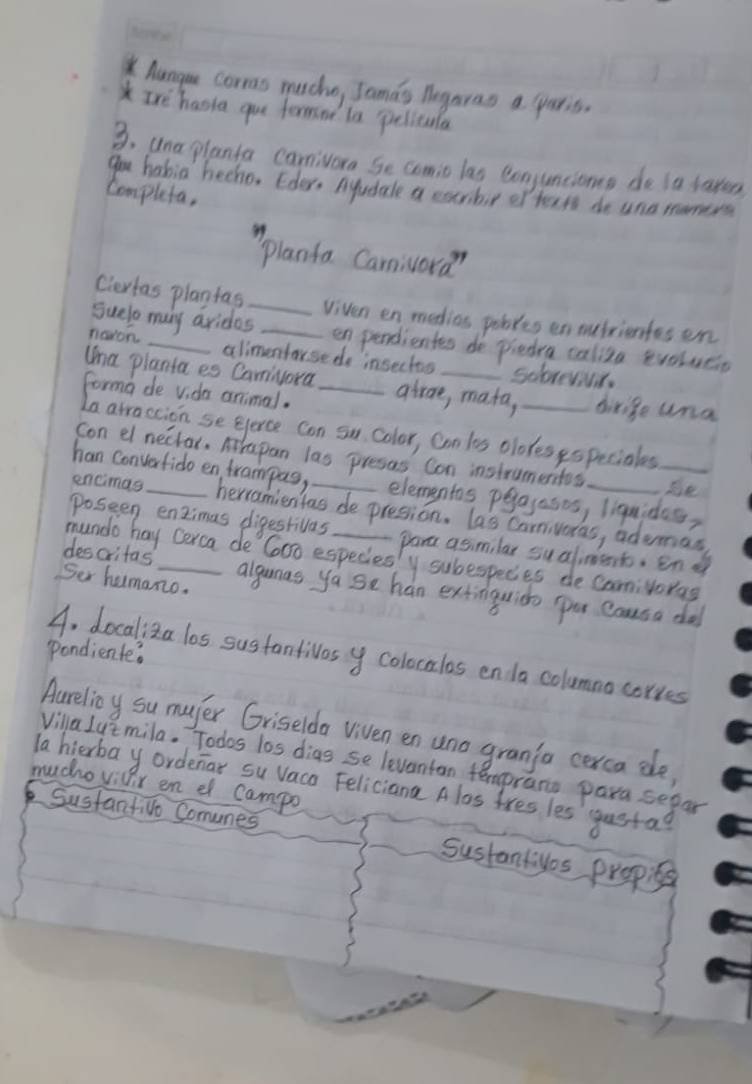 * Aunque corras mucho, Jamás llegaras a paris.
* Iré hasta que termine la pelicula
3. una planta carnivora se comio las conjunciones de la tarea
que habia hecho. Eder. Ayudale a escribir el texto de una manera
Completa.
"planta Carnivora"
Ciertas plantas ____ viven en medios pobres en nutrientes en
Suelo muy áridos ____ en pendientes de piedra caliza evolucio
naron ____ alimentarse de insectos ____ sobrevivir.
Una planta es Carnivora ____ atrae, mata, ____ dirige una
forma de vida animal.
La atracción se ejerce con su color, con los olores especiales ____
con el nectar. Atrapan las presas con instrumentos ____ se
han convertido en trampas, ____ elementos pegajosos, liquidos,
encimas ____ herramientas de presión. las carnivoras, ademas
poseen enzimas digestivas ____ para asimilar su alimento. En el
mundo hay cerca de 600 especies y subespecies de carnivoras
descritas ____ algunas ya se han extinguido por causa del
Ser humano.
4. Localiza los sustantivos y colocalos en la columna corres
pondiente:
Aurelio y su mujer Griselda viven en una granja cerca de,
Villa Luzmila. Todos los dias se levantan temprano para segar
la hierba y ordeñar su vaca Feliciana A los tres les gusta
mucho vivir en el campo
Sustantivo Comunes
Sustantivos propios